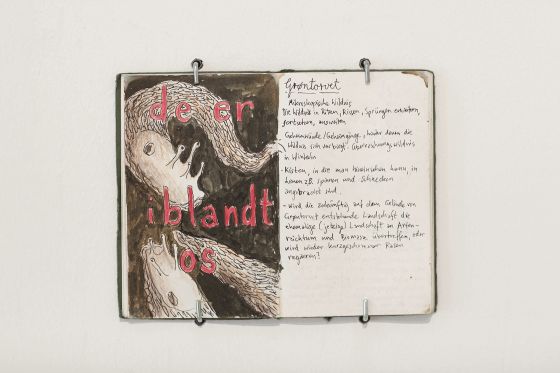 de er
iblandt
os
Grøntorvet
Mikroskopische Wildnis
Die Wildnis in Ritzen, Rissen, Sprüngen entdecken,
fortsetzen, ausweiten
- Geheimwände/Geheimgänge, hinter denen die
Wildnis sich verbirgt.
in Winkeln
- Kästen, in die man hineinsehen kann, in
denen z.B. Spinnen und Schnecken
angebracht sind.
- wird die zukünftig auf dem Gelände von
Grøntorvet entstehende Landschaft die
ehemalige (jetzige) Landschaft an Arten-
reichtum und Biomasse übertreffen, oder
wird wieder kurzgeschorener Rasen
regieren?